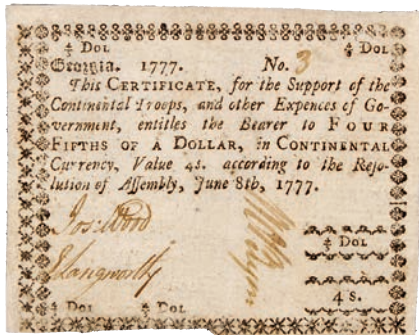 4/5 Dol 4/5 Dol
Georgia. 1777. No. 3
This CERTIFICATE, for the Support of the
Continental Troops, and other Expences of Go-
vernment, entitles the Bearer to FOUR
FIFTHS OF A DOLLAR, in CONTINENTAL
Currency, Value 4s. according to the Reso-
lution of Assembly, June 8th, 1777.
Jos: Wood
Langworthy
4/5 DOL
4 s.
4/5 DOL 4/5 DOL